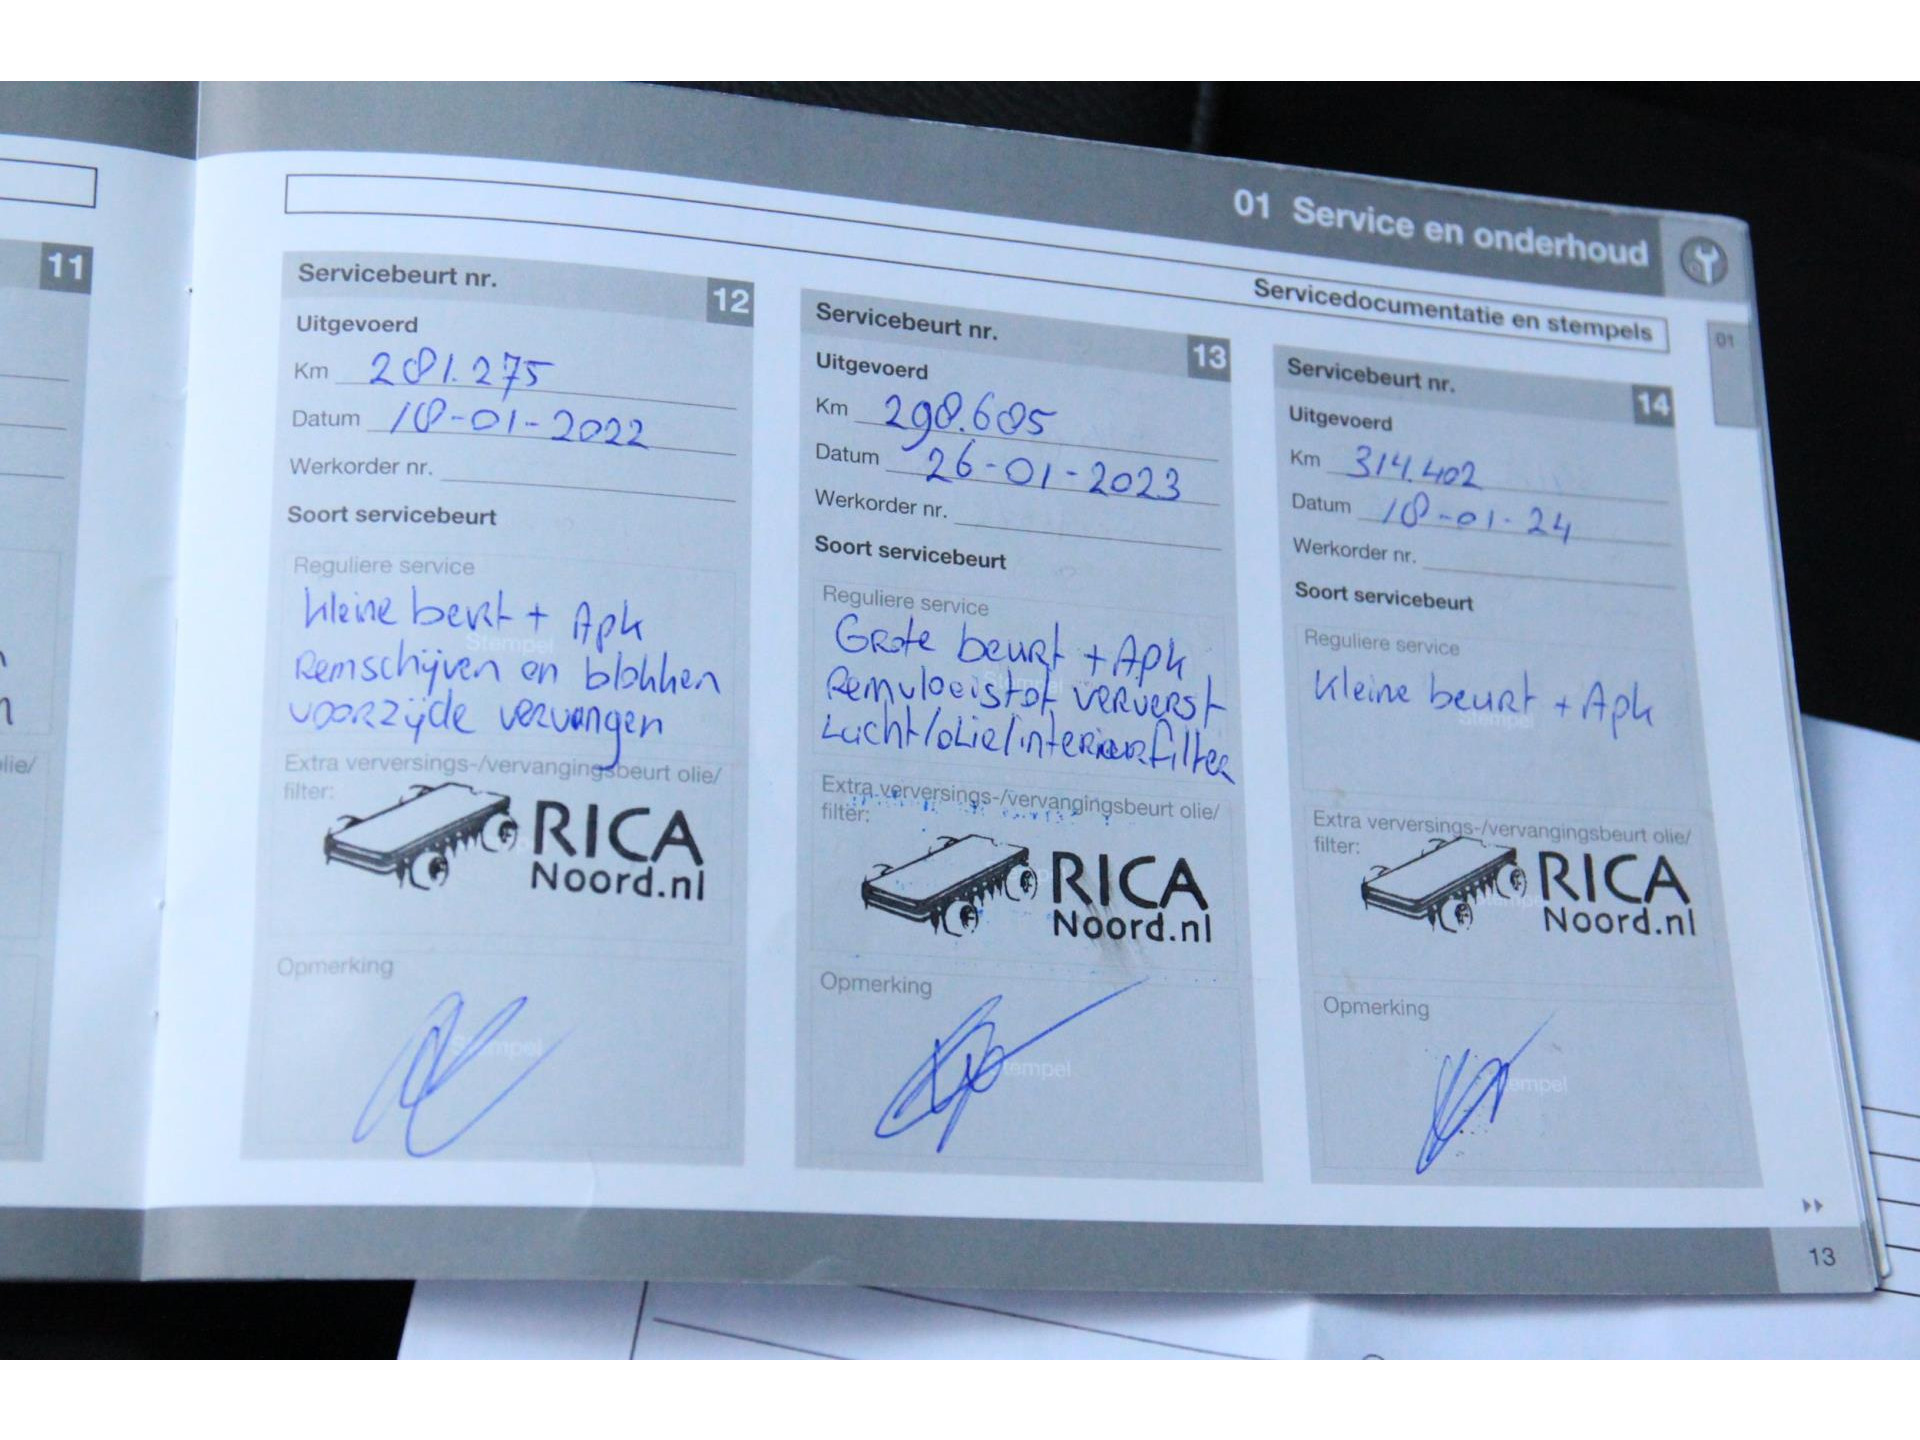 01 Service en onderhoud
Servicedocumentatie en stempels
01
11
lie/
Servicebeurt nr. 12
Uitgevoerd
Km 281.275
Datum 18-01-2022
Werkorder nr.
Soort servicebeurt
Reguliere service
Kleine beurt + Apk
Stempel
Remschijven en blokken
voorzijde vervangen
Extra verversings-/vervangingsbeurt olie/
filter:
RICA
Noord.nl
Opmerking
Stempel
Servicebeurt nr. 13
Uitgevoerd
Km 298.685
Datum 26-01-2023
Werkorder nr.
Soort servicebeurt
Reguliere service
Grote beurt + Apk
Stempel
Remvloeistof ververst
Lucht/olie/interieurfilter
Extra verversings-/vervangingsbeurt olie/
filter:
RICA
Noord.nl
Opmerking
Stempel
Servicebeurt nr. 14
Uitgevoerd
Km 314.402
Datum 18-01-24
Werkorder nr.
Soort servicebeurt
Reguliere service
Kleine beurt + Apk
Stempel
Extra verversings-/vervangingsbeurt olie/
filter:
RICA
Noord.nl
Opmerking
Stempel
13